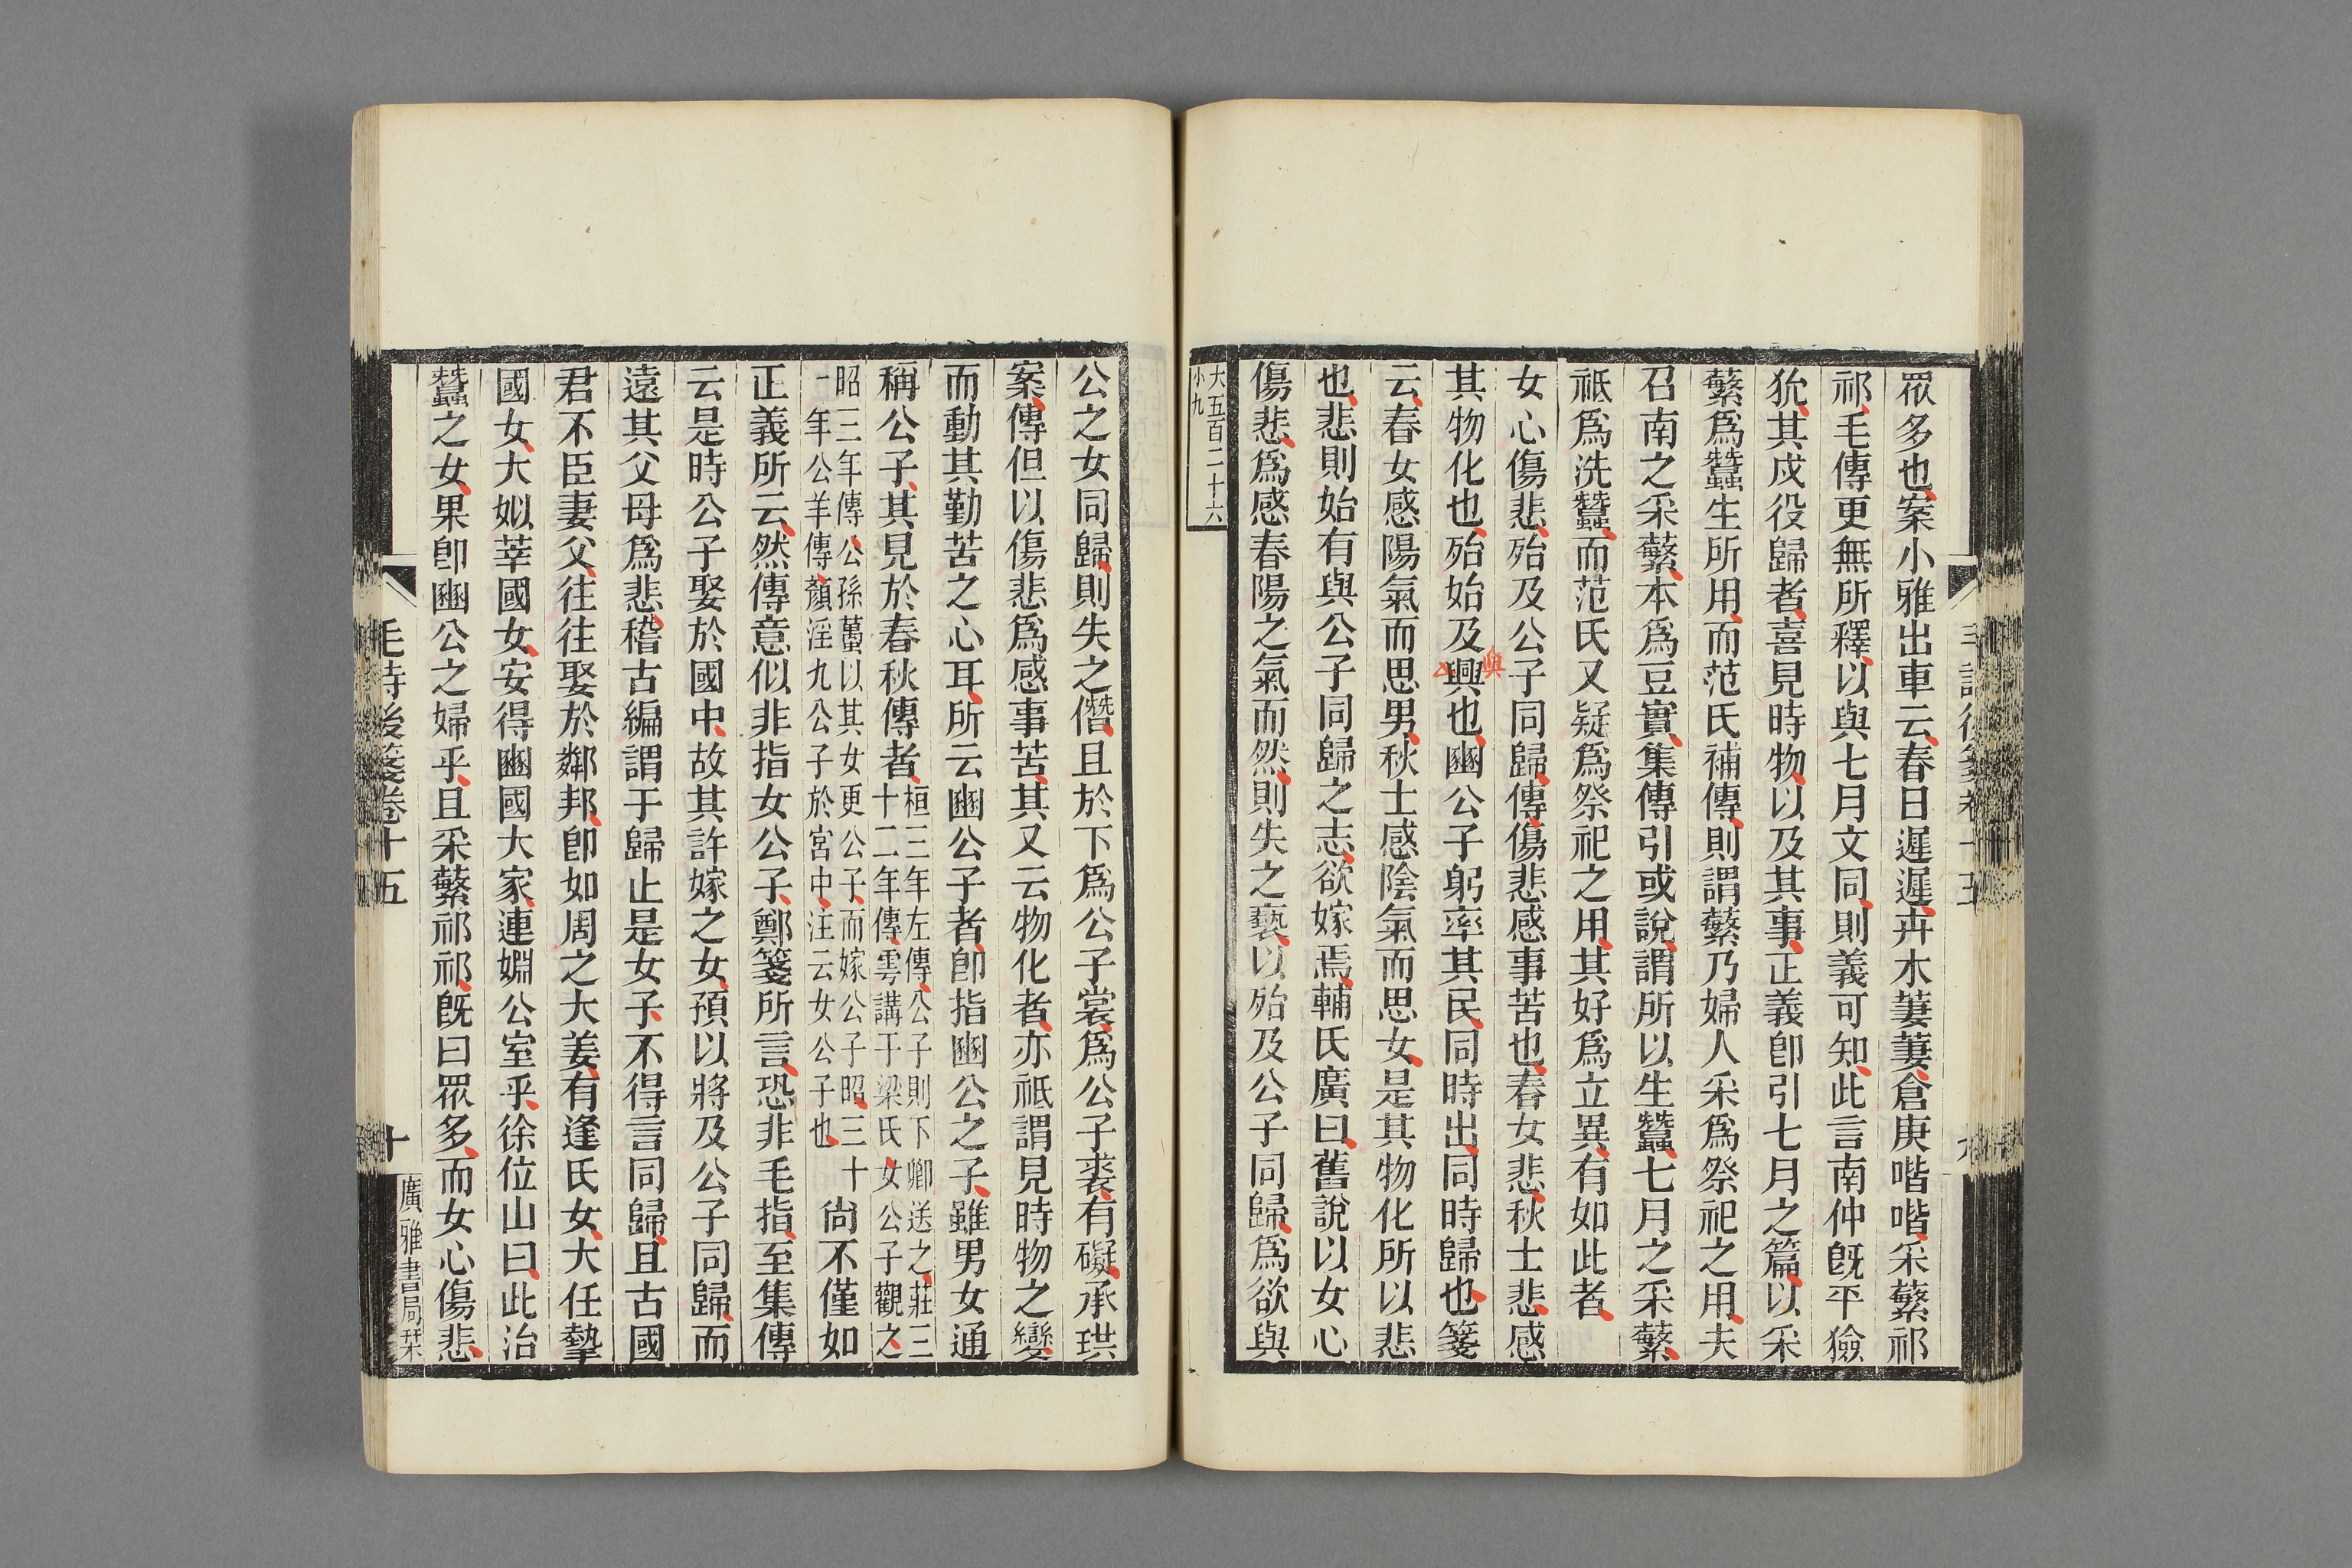 眾多也案小雅出車云春日遲遲卉木萋萋倉庚喈喈采蘩祁
祁毛傳更無所釋以與七月文同則義可知此言南仲旣平獫
狁其戍役歸者喜見時物以及其事正義卽引七月之篇以采
蘩爲蠶生所用而范氏補傳則謂蘩乃婦人采爲祭祀之用夫
召南之采蘩本爲豆實集傳引或說謂所以生蠶七月之采蘩
祗爲洗蠶而范氏又疑爲祭祀之用其好爲立異有如此者
女心傷悲殆及公子同歸傳傷悲感事苦也春女悲秋士悲感
其物化也殆始及興也豳公子躬率其民同時出同時歸也箋
與
云春女感陽氣而思男秋士感陰氣而思女是其物化所以悲
也悲則始有與公子同歸之志欲嫁焉輔氏廣曰舊說以女心
傷悲爲感春陽之氣而然則失之褻以殆及公子同歸爲欲與
大五百二十六
小九
公之女同歸則失之僭且於下爲公子裳爲公子裘有礙承珙
案傳但以傷悲爲感事苦其又云物化者亦祗謂見時物之變
而動其勤苦之心耳所云豳公子者卽指豳公之子雖男女通
稱公子其見於春秋傳者桓三年左傳公子則下卿送之莊三
十二年傳雩講于梁氏女公子觀之
昭三年傳公孫蠆以其女更公子而嫁公子昭三十
一年公羊傳顏淫九公子於宮中注云女公子也尙不僅如
正義所云然傳意似非指女公子鄭箋所言恐非毛指至集傳
云是時公子娶於國中故其許嫁之女預以將及公子同歸而
遠其父母爲悲稽古編謂于歸止是女子不得言同歸且古國
君不臣妻父往往娶於鄰邦卽如周之大姜有逢氏女大任摯
國女大姒莘國女安得豳國大家連姻公室乎徐位山曰此治
蠶之女果卽豳公之婦乎且采蘩祁祁旣曰眾多而女心傷悲
毛詩後箋卷十五
十
廣雅書局栞